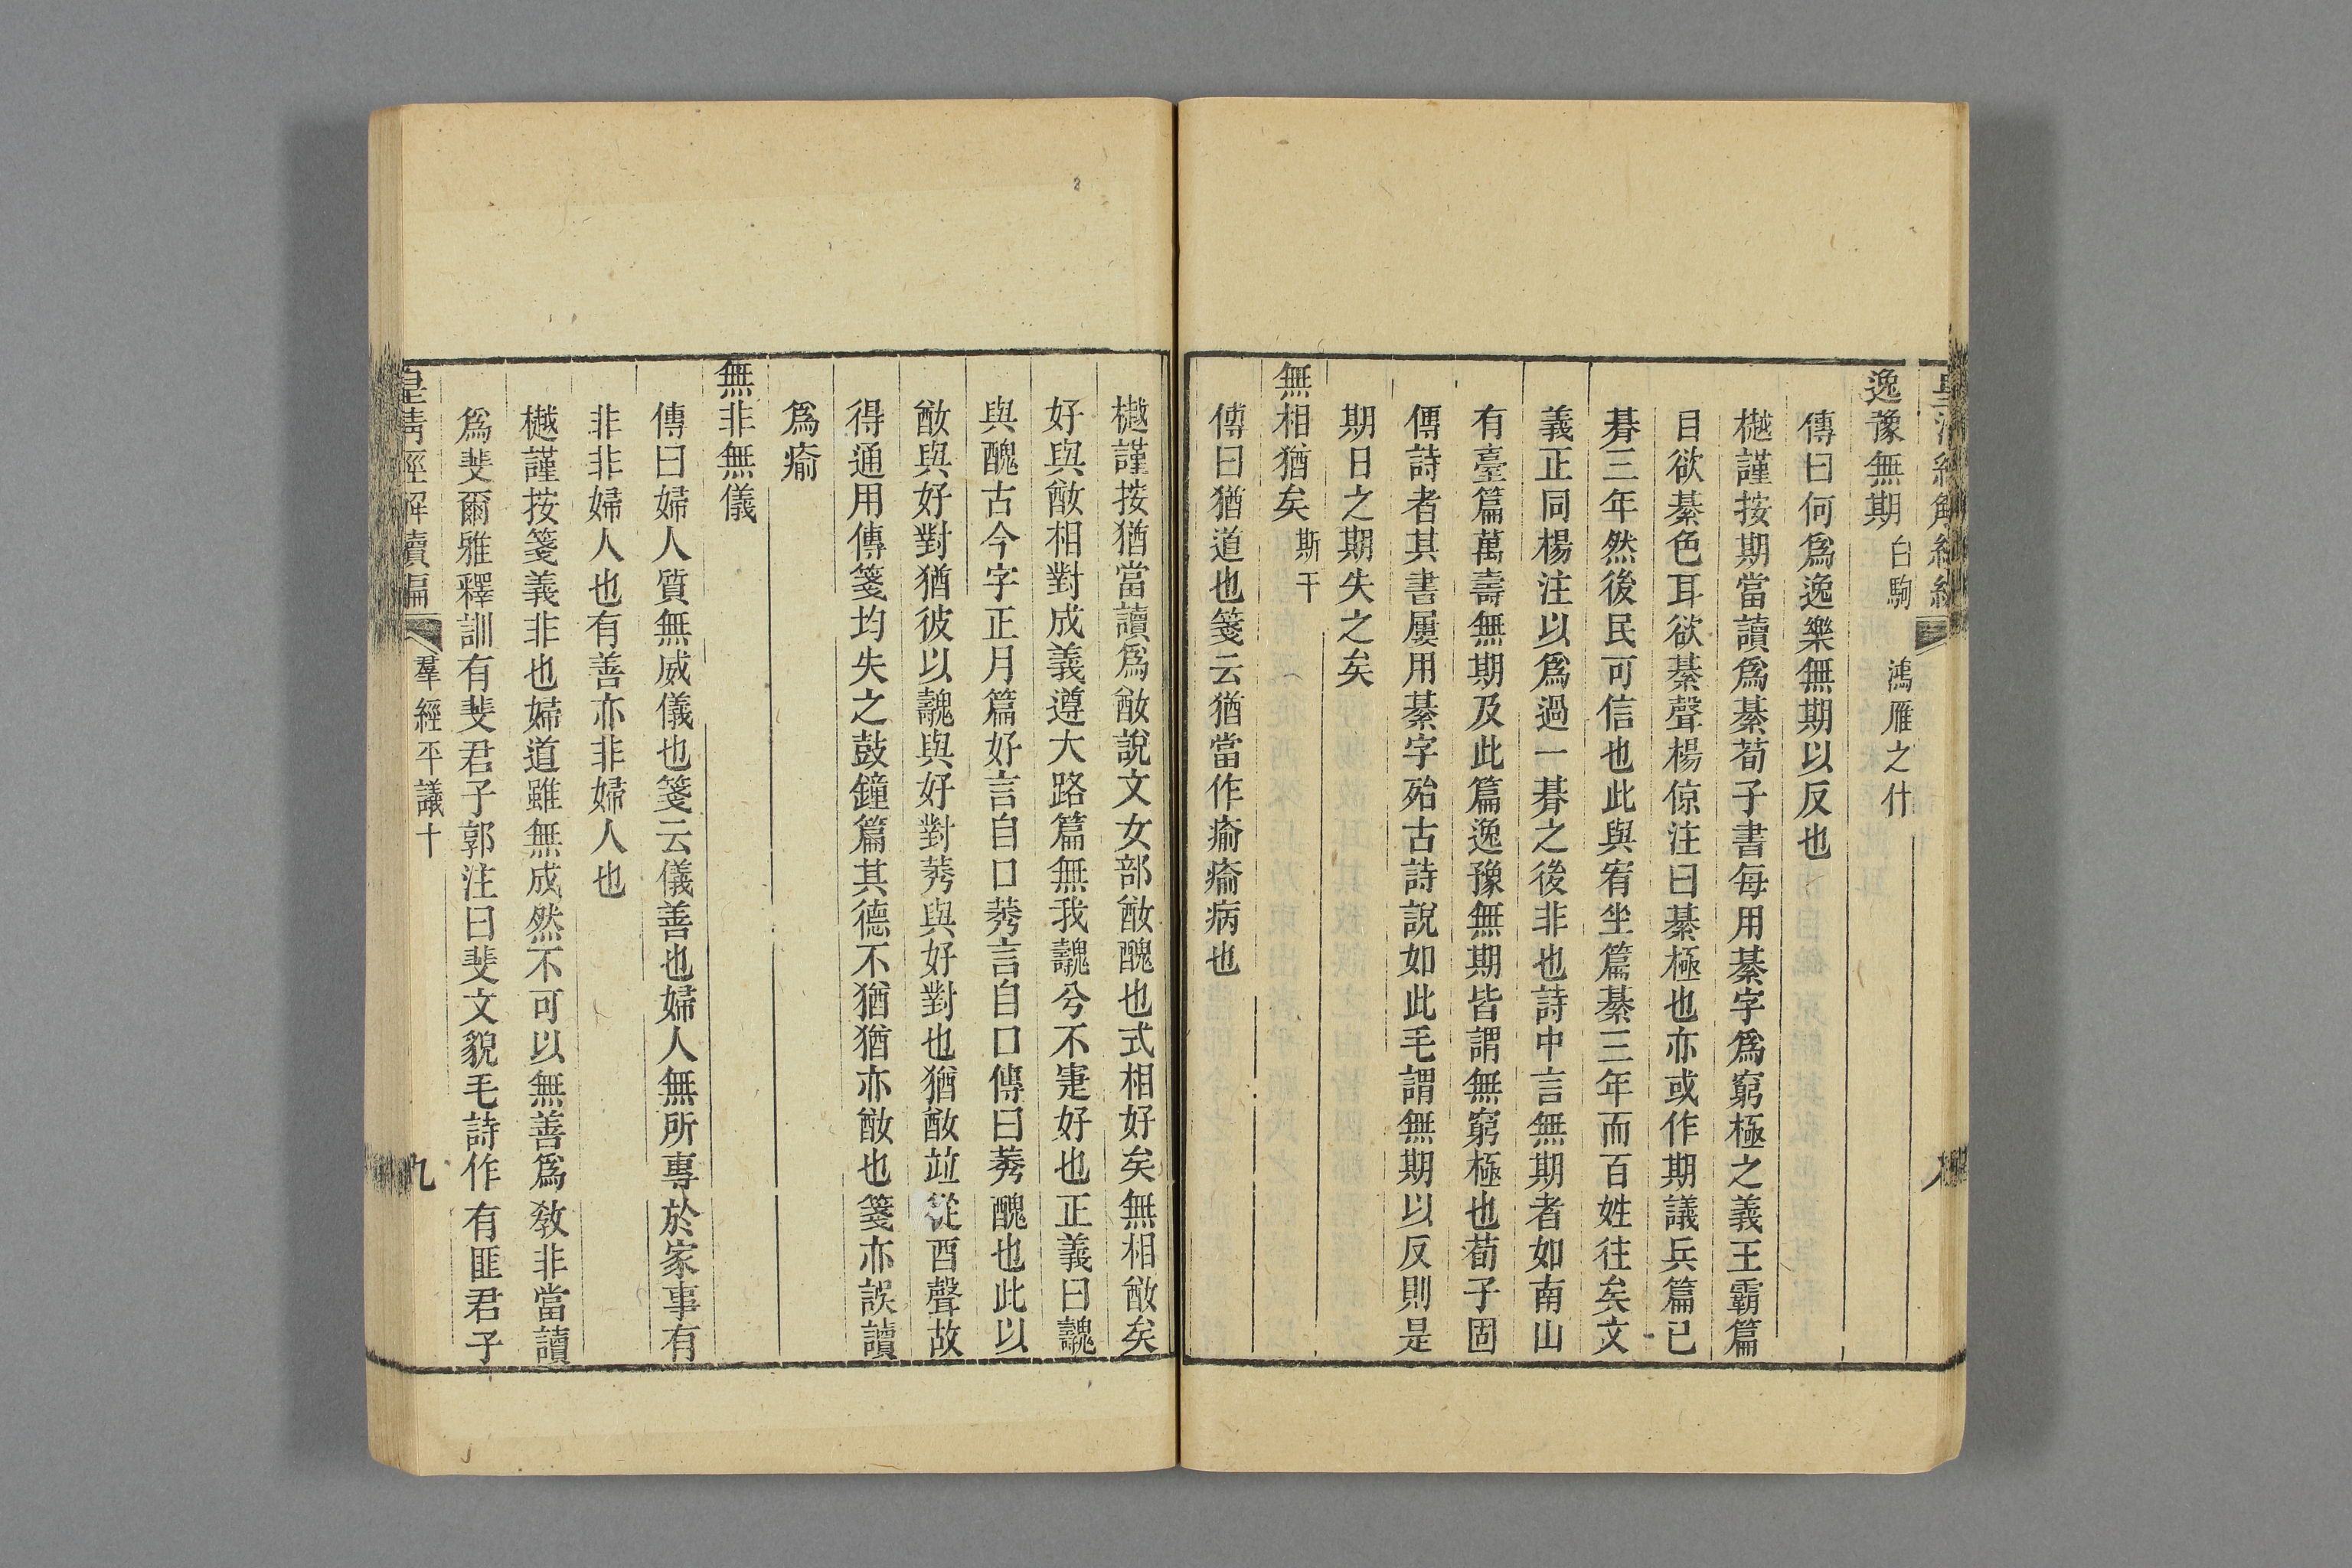 逸豫無期 白駒 鴻雁之什
傳曰何爲逸樂無期以反也
樾謹按期當讀爲綦荀子書每用綦字爲窮極之義王霸篇
目欲綦色耳欲綦聲楊倞注曰綦極也亦或作期議兵篇已
朞三年然後民可信也此與宥坐篇綦三年而百姓往矣文
義正同楊注以爲過一朞之後非也詩中言無期者如南山
有臺篇萬壽無期及此篇逸豫無期皆謂無窮極也荀子固
傳詩者其書屢用綦字殆古詩說如此毛謂無期以反則是
期日之期失之矣
無相猶矣 斯干
傳曰猶道也箋云猶當作瘉瘉病也
樾謹按猶當讀爲㛱說文女部㛱醜也式相好矣無相㛱矣
好與㛱相對成義遵大路篇無我魗兮不寁好也正義曰魗
與醜古今字正月篇好言自口莠言自口傳曰莠醜也此以
㛱與好對猶彼以魗與好對莠與好對也猶㛱竝從酉聲故
得通用傳箋均失之鼓鐘篇其德不猶猶亦㛱也箋亦誤讀
爲瘉
無非無儀
傳曰婦人質無威儀也箋云儀善也婦人無所專於家事有
非非婦人也有善亦非婦人也
樾謹按箋義非也婦道雖無成然不可以無善爲敎非當讀
爲斐爾雅釋訓有斐君子郭注曰斐文貌毛詩作有匪君子
皇清經解續編 羣經平議十 九